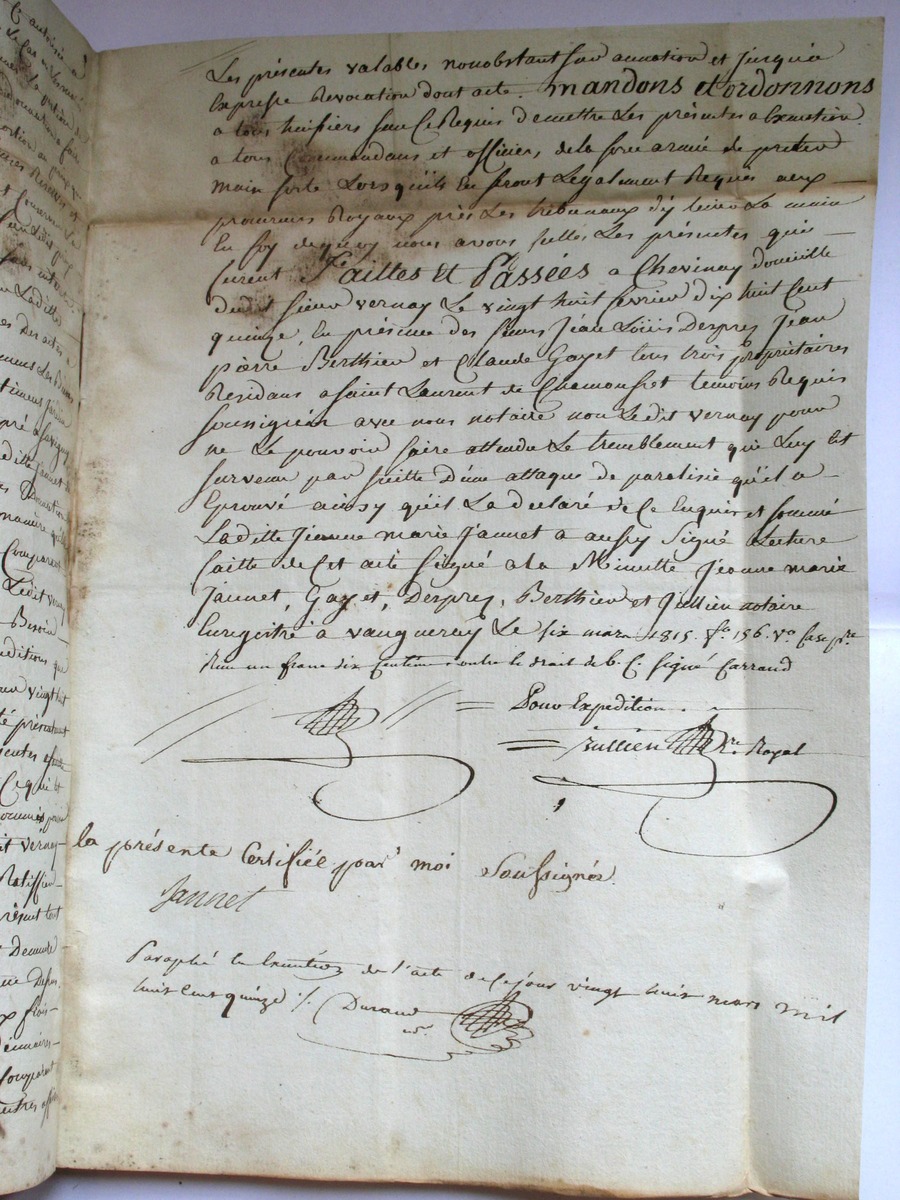 Les présentes valables nonobstant surannation et jusqu'à
Expresse Revocation dont acte. mandons et ordonnons
a tous huissiers sur ce Requis de mettre Les présentes a Execution
a tous Commandans et officiers de la force armée de preter
main forte Lorsqu'ils En seront Legalement Requis aux
procureurs Royaux près Les tribunaux d'y tenir La main
En foy de quoy nous avons scellés Les présentes qui
furent Faittes et Passées a Chevinay domicille
dudit sieur Vernay Le vingt huit fevrier dix huit Cent
quinze, En présence des sieurs Jean Loüis Despres Jean
pierre Berthier et Claude Gayet tous trois propriétaires
Residans a Saint Laurent de Chamousset temoins Requis
soussignés avec nous notaire non Ledit Vernay pour
ne Le pouvoir faire attendu Le tremblement qui Luy Est
survenu par suitte d'une attaque de paralisie qu'il a
Eprouvé ainsy qu'il La declaré de Ce Enquis et sommé
Laditte Jeanne marie Jannet a aussy signé Lecture
faitte de Cet acte signé a La Minutte Jeanne marie
Jannet, Gayet, Despres, Berthier et Jullien notaire
Enregistré a vaugneray Le six mars 1815. fo. 156. vo. Case pre.
Reçu un franc dix Centimes outre le droit de b. C. signé Carrand
Pour Expedition.
Jullien Nre. Royal
la présente Certifiée par moi soussignée
Jannet
Paraphé en Execution de l'acte de ce jour vingt huit mars mil
huit cent quinze /. Durand